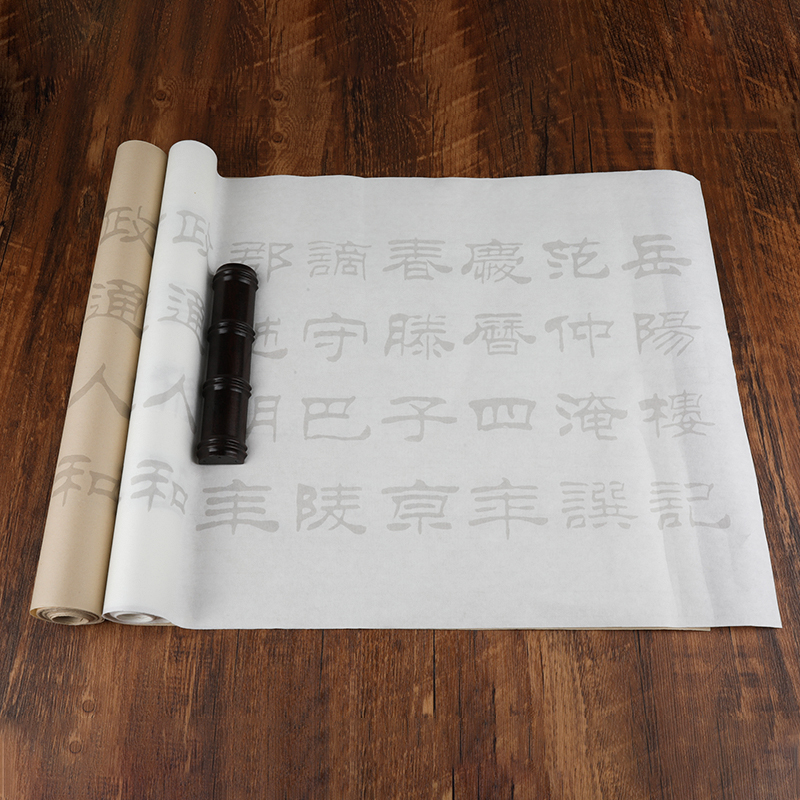 岳陽樓記
范仲淹譔
慶曆四年
春滕子京
謫守巴陵
郡越明年
政通人和
政通人和